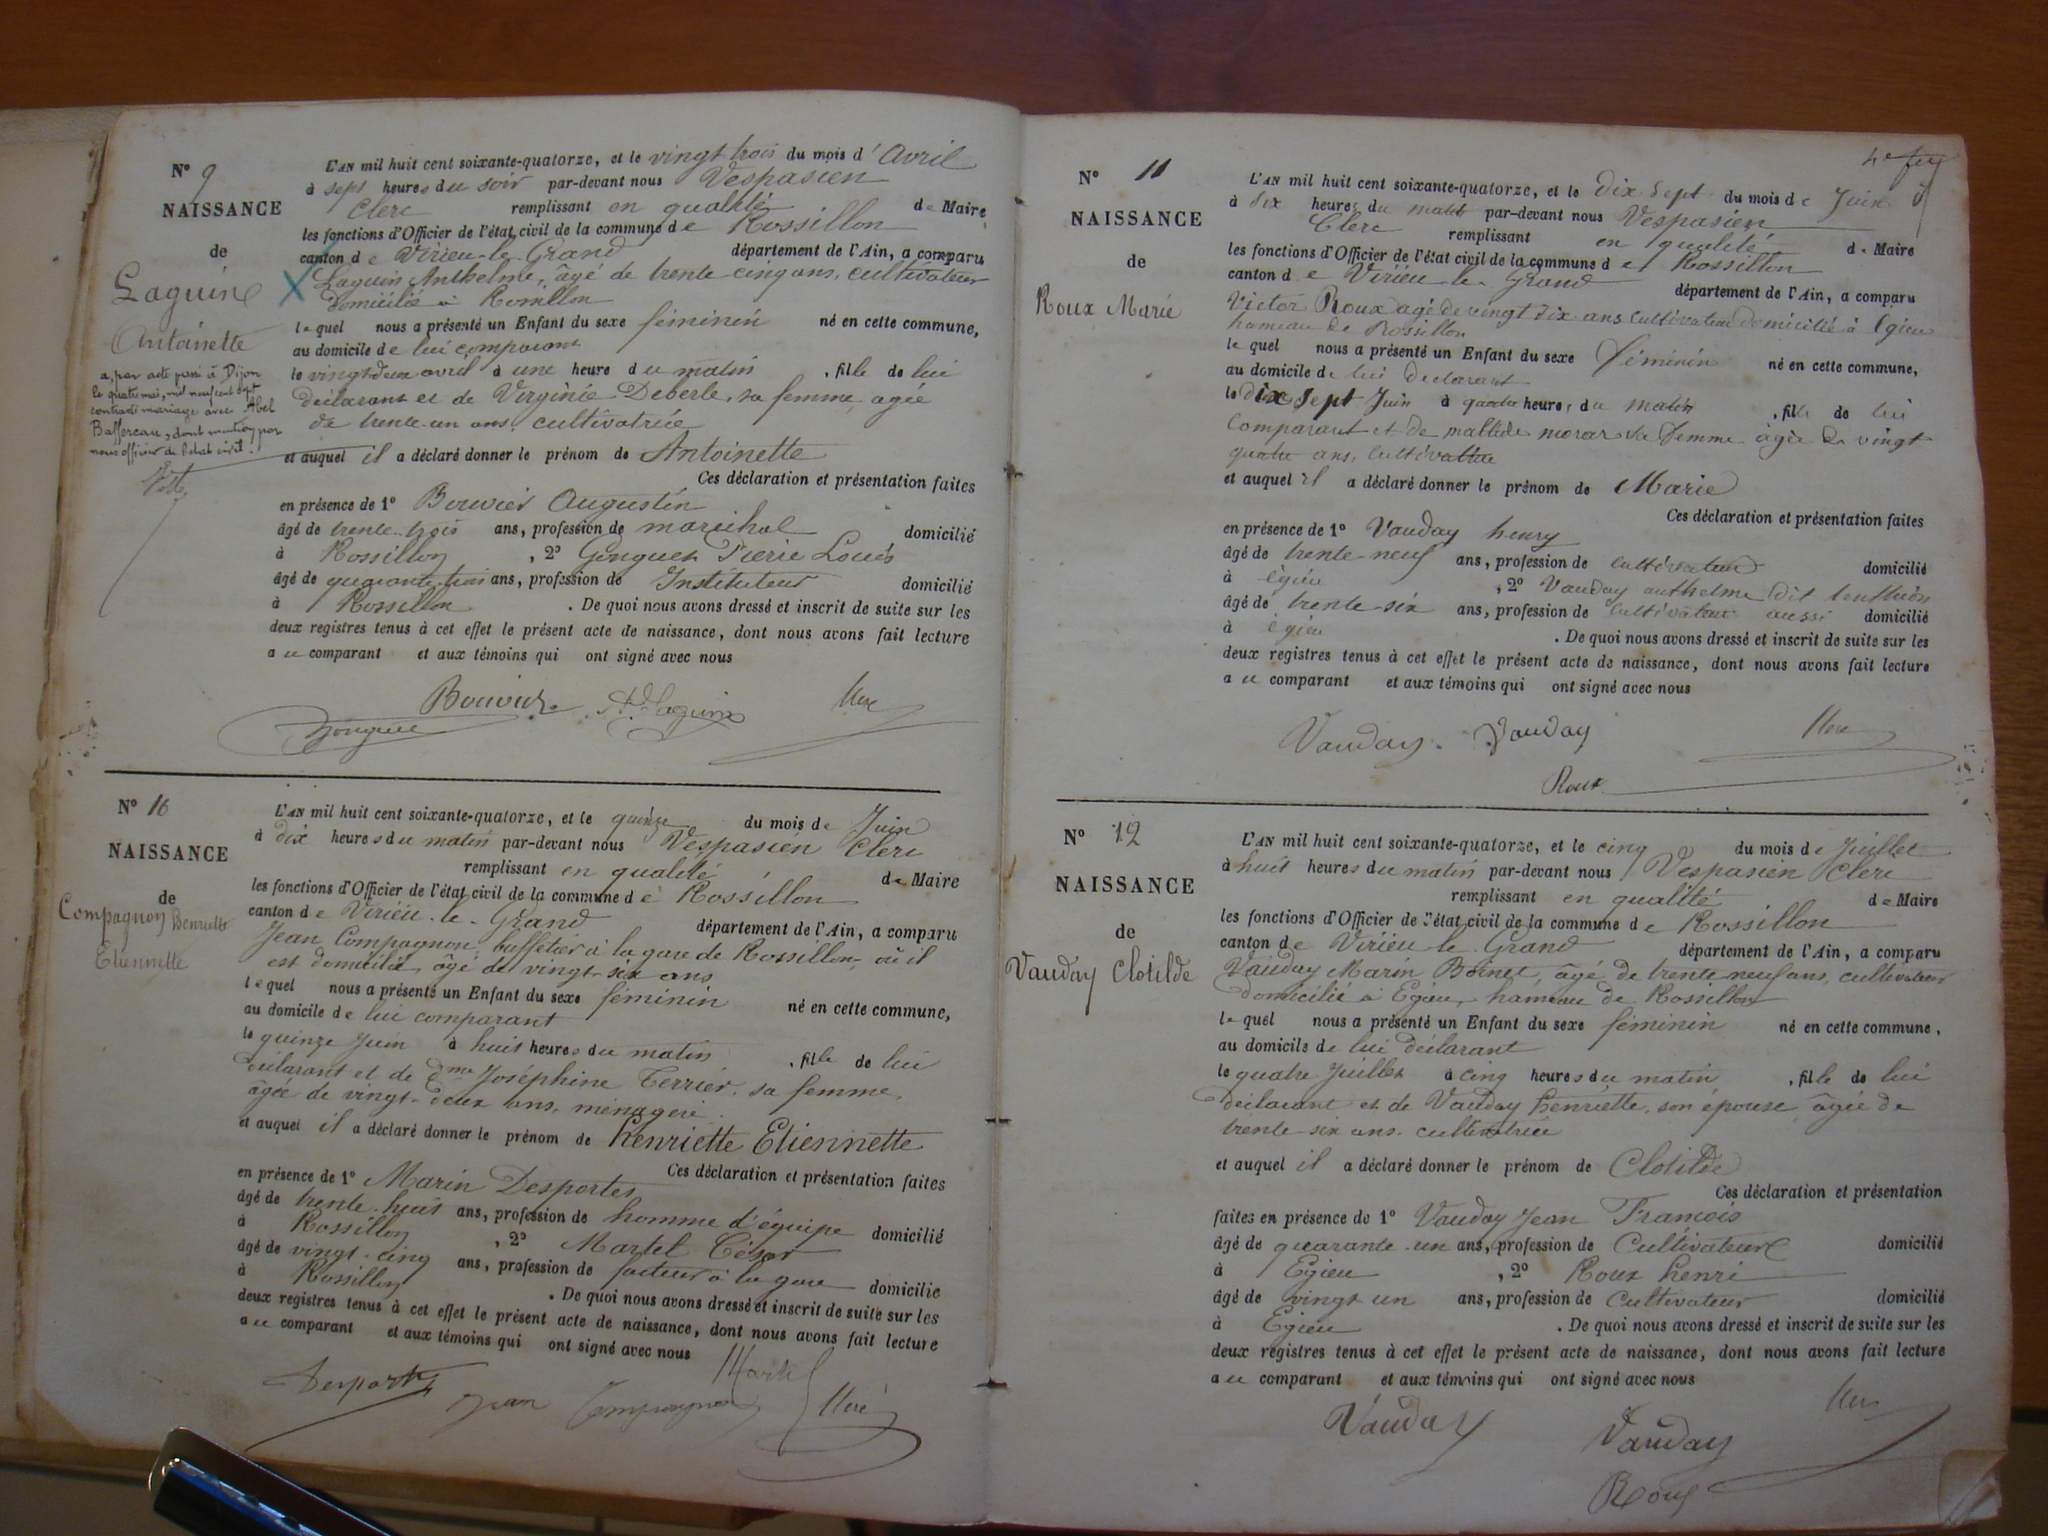 N° 9
NAISSANCE
de
Laguin
Antoinette
a, par acte passé à Dijon
le quatre mai, mil neuf cent sept
contracté mariage avec Abel
Baffereau, dont mention par
nous officier de l'état civil.
L'AN mil huit cent soixante-quatorze, et le vingt trois du mois d'Avril
à sept heures du soir par-devant nous Vespasien
Clerc remplissant en qualité de Maire
les fonctions d'Officier de l'état civil de la commune de Rossillon
canton de Virieu-le-Grand département de l'Ain, a comparu
Laguin Anthelme, âgé de trente-cinq ans, cultivateur
domicilié à Rossillon
lequel nous a présenté un Enfant du sexe féminin né en cette commune,
au domicile de lui comparant
le vingt-deux avril à une heure du matin, fille de lui
déclarant et de Virginie Deberle, sa femme, agée
de trente-un ans, cultivatrice
et auquel il a déclaré donner le prénom de Antoinette
Ces déclaration et présentation faites
en présence de 1° Bouvier Augustin
âgé de trente-trois ans, profession de maréchal domicilié
à Rossillon, 2° Gonguet Pierre Louis
âgé de quarante-trois ans, profession de Instituteur domicilié
à Rossillon. De quoi nous avons dressé et inscrit de suite sur les
deux registres tenus à cet effet le présent acte de naissance, dont nous avons fait lecture
au comparant et aux témoins qui ont signé avec nous
Bouvier Laguin Clerc
Gonguet
N° 10
NAISSANCE
de
Compagnon Henriette
Etiennette
L'AN mil huit cent soixante-quatorze, et le quinze du mois de Juin
à dix heures du matin par-devant nous Vespasien Clerc
remplissant en qualité de Maire
les fonctions d'Officier de l'état civil de la commune de Rossillon
canton de Virieu-le-Grand département de l'Ain, a comparu
Jean Compagnon, buffetier à la gare de Rossillon, où il
est domicilié, âgé de vingt-six ans
lequel nous a présenté un Enfant du sexe féminin né en cette commune,
au domicile de lui comparant
le quinze Juin à huit heures du matin, fille de lui
déclarant et de dme Joséphine Terrier, sa femme,
âgée de vingt-deux ans, ménagère.
et auquel il a déclaré donner le prénom de Henriette Etiennette
Ces déclaration et présentation faites
en présence de 1° Marin Desportes
âgé de trente-huit ans, profession de homme d'équipe domicilié
à Rossillon, 2° Martel César
âgé de vingt-cinq ans, profession de facteur à la gare domicilié
à Rossillon. De quoi nous avons dressé et inscrit de suite sur les
deux registres tenus à cet effet le présent acte de naissance, dont nous avons fait lecture
au comparant et aux témoins qui ont signé avec nous
Desportes Jean Compagnon Martel Clerc
4e
N° 11
NAISSANCE
de
Roux Marie
L'AN mil huit cent soixante-quatorze, et le dix sept du mois de Juin
à dix heures du matin par-devant nous Vespasien
Clerc remplissant en qualité de Maire
les fonctions d'Officier de l'état civil de la commune de Rossillon
canton de Virieu-le-Grand département de l'Ain, a comparu
Victor Roux agé de vingt six ans cultivateur domicilié à Egieu
hameau de Rossillon
lequel nous a présenté un Enfant du sexe féminin né en cette commune,
au domicile de lui déclarant
le dix sept Juin à quatre heures du matin, fille de lui
comparant et de sa femme âgée de vingt
quatre ans, cultivatrice
et auquel il a déclaré donner le prénom de Marie
Ces déclaration et présentation faites
en présence de 1° Vauday henry
âgé de trente-neuf ans, profession de cultivateur domicilié
à égieu, 2° Vauday anthelme dit
âgé de trente-six ans, profession de cultivateur aussi domicilié
à égieu. De quoi nous avons dressé et inscrit de suite sur les
deux registres tenus à cet effet le présent acte de naissance, dont nous avons fait lecture
au comparant et aux témoins qui ont signé avec nous
Vauday Vauday Clerc
Roux
N° 12
NAISSANCE
de
Vauday Clotilde
L'AN mil huit cent soixante-quatorze, et le cinq du mois de Juillet
à huit heures du matin par-devant nous Vespasien Clerc
remplissant en qualité de Maire
les fonctions d'Officier de l'état civil de la commune de Rossillon
canton de Virieu-le-Grand département de l'Ain, a comparu
Vauday Marin Bornet, âgé de trente-neuf ans, cultivateur
domicilié à Egieu, hameau de Rossillon
lequel nous a présenté un Enfant du sexe féminin né en cette commune,
au domicile de lui déclarant
le quatre Juillet à cinq heures du matin, fille de lui
déclarant et de Vauday henriette, son épouse, âgée de
trente-six ans, cultivatrice
et auquel il a déclaré donner le prénom de Clotilde
Ces déclaration et présentation
faites en présence de 1° Vauday Jean François
âgé de quarante-un ans, profession de Cultivateur domicilié
à Egieu, 2° Roux henri
âgé de vingt-un ans, profession de Cultivateur domicilié
à Egieu. De quoi nous avons dressé et inscrit de suite sur les
deux registres tenus à cet effet le présent acte de naissance, dont nous avons fait lecture
au comparant et aux témoins qui ont signé avec nous
Vauday Vauday Clerc
Roux